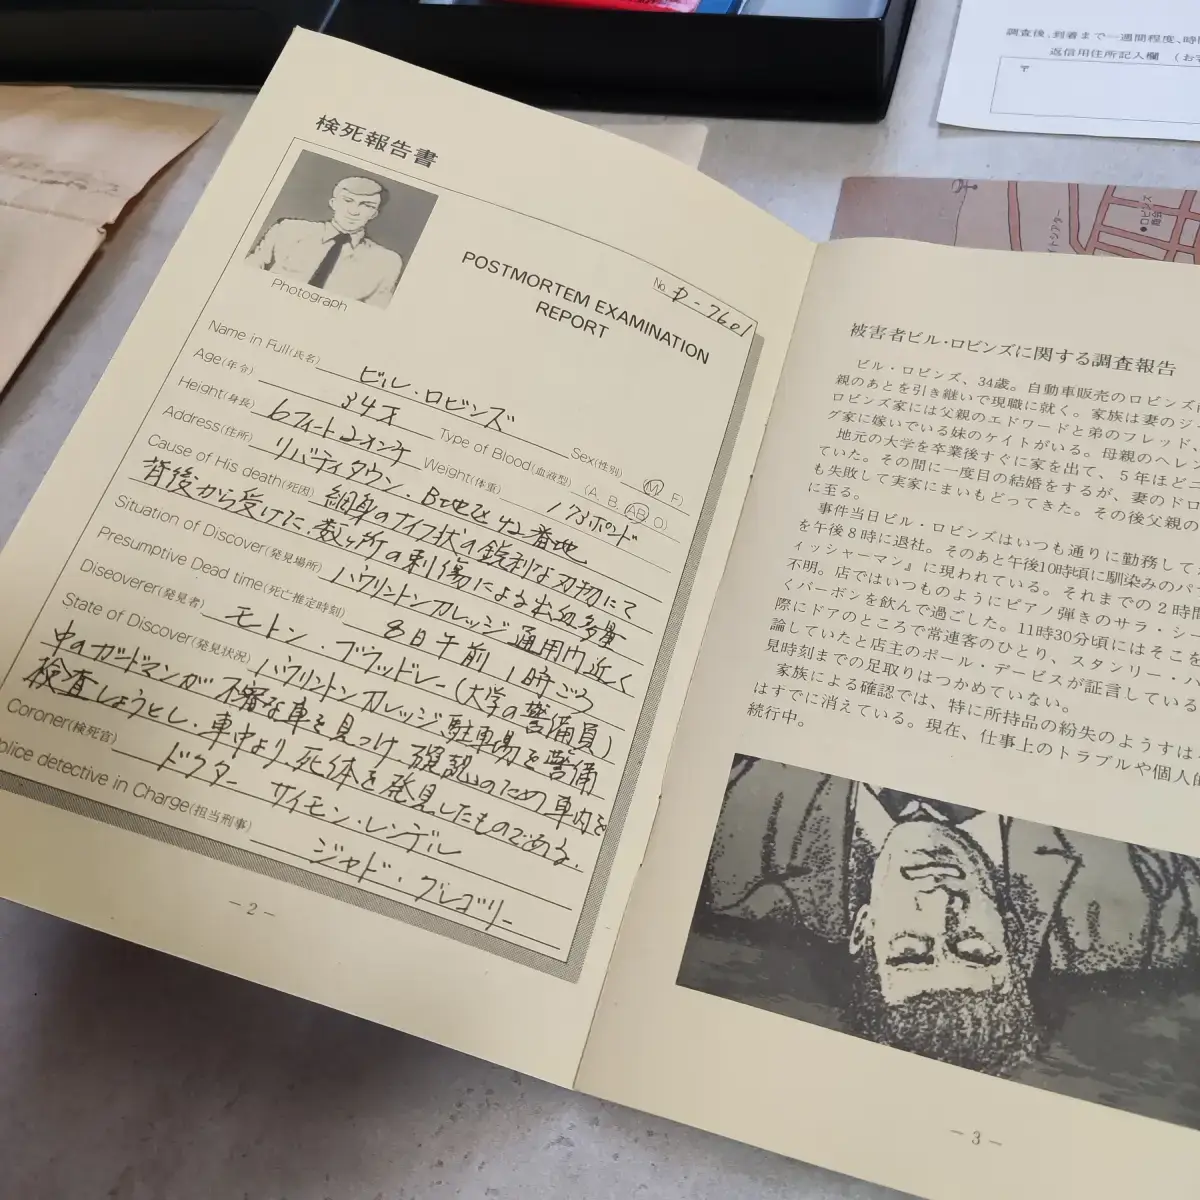 検死報告書
Photograph
POSTMORTEM EXAMINATION
REPORT
No. D-7601
Name in Full(氏名) ビル・ロビンズ
Sex(性別) (M, F)
Age(年令) 34才
Type of Blood(血液型) (A, B, AB, O)
Height(身長) 6フィート2インチ
Weight(体重) 173ポンド
Address(住所) リバティタウン・B地区42番地
Cause of His death(死因) 細身のナイフ状の鋭利な刃物にて
背後から受けた、数ヶ所の刺傷による出血多量
Situation of Discover(発見場所) ハウリントンカレッジ通用門近く
Presumptive Dead time(死亡推定時刻) 8日午前1時ごろ
Diseoverer(発見者) モートン・ブラッドレー(大学の警備員)
State of Discover(発見状況) ハウリントンカレッジ駐車場を警備
中のガードマンが不審な車を見つけ、確認のため車内を
検査しようとし、車中より、死体を発見したものである。
Coroner(検死官) ドクター サイモン・レンデル
Police detective in Charge(担当刑事) ジャド・グレゴリー
— 2 —
被害者ビル・ロビンズに関する調査報告
ビル・ロビンズ、34歳。自動車販売のロビンズ
親のあとを引き継いで現職に就く。家族は妻のジ
ロビンズ家には父親のエドワードと弟のフレッド、
グ家に嫁いでいる妹のケイトがいる。母親のヘレン
地元の大学を卒業後すぐに家を出て、5年ほどニ
ていた。その間に一度目の結婚をするが、妻のドロ
も失敗して実家にまいもどってきた。その後父親の
に至る。
事件当日ビル・ロビンズはいつも通りに勤務して
を午後8時に退社。そのあと午後10時頃に馴染みのパ
ィッシャーマン』に現われている。それまでの2時間
不明。店ではいつものようにピアノ弾きのサラ・シ
くバーボンを飲んで過ごした。11時30分頃にはそこを
際にドアのところで常連客のひとり、スタンリー・ハ
論していたと店主のポール・デービスが証言している
見時刻までの足取りはつかめていない。
家族による確認では、特に所持品の紛失のようすは
はすでに消えている。現在、仕事上のトラブルや個人的
続行中。
— 3 —
調査後、到着まで一週間程度、時間
返信用住所記入欄 (お
〒
イトシアター
●ロビンズ
商会